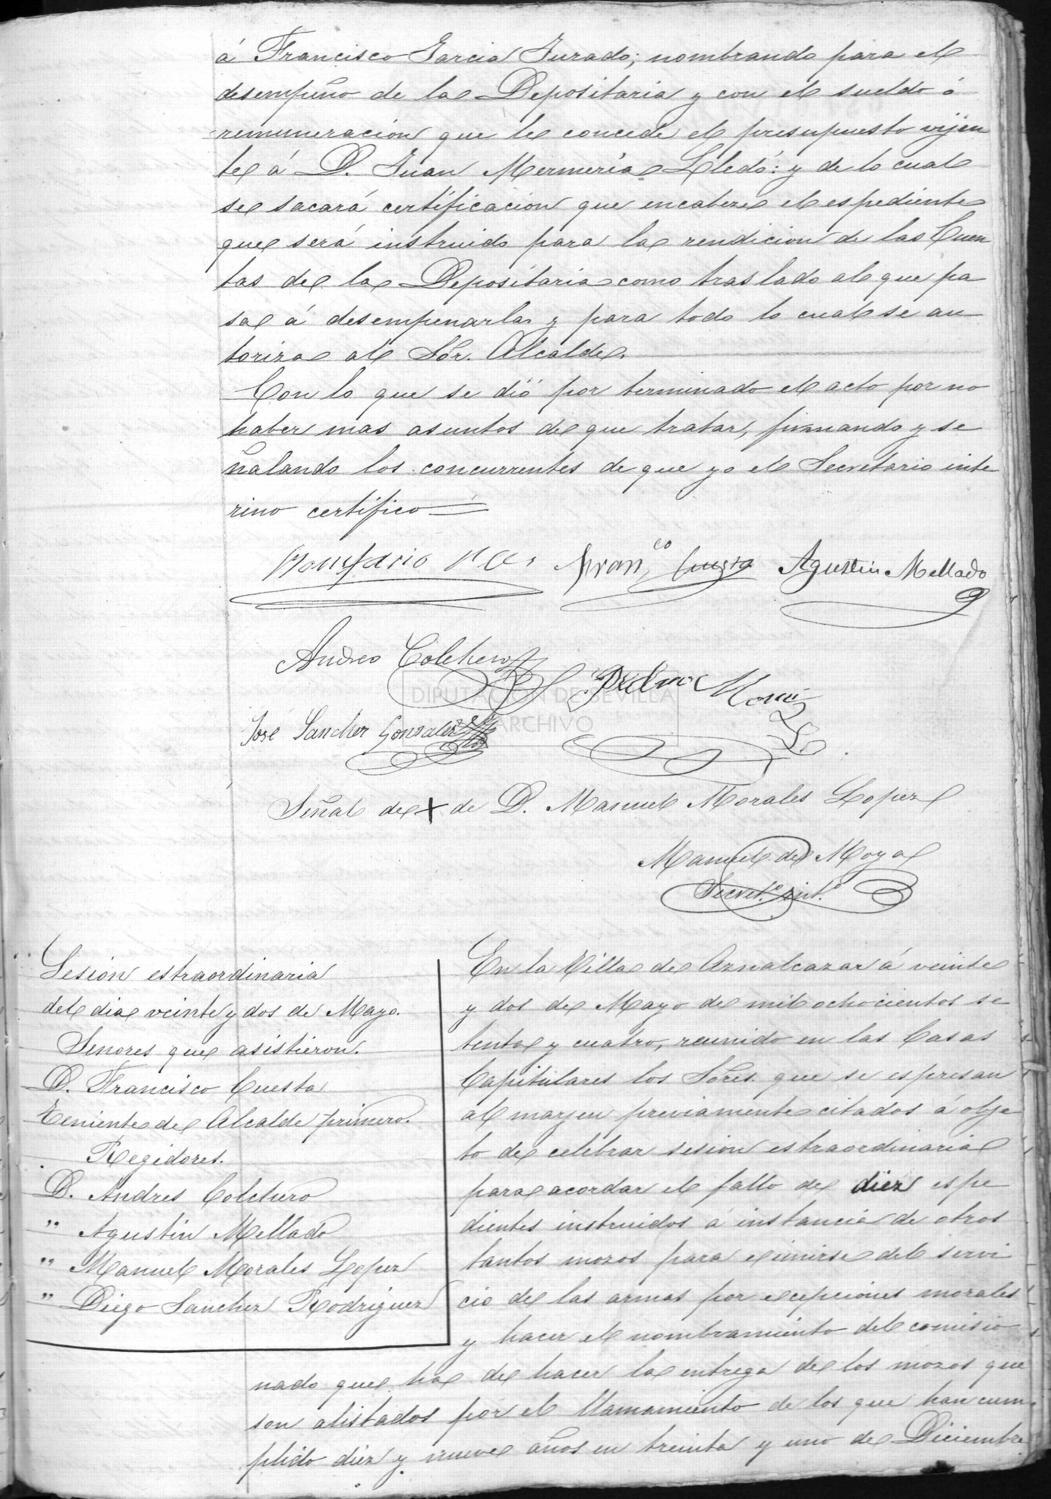 á Francisco Garcia Jurado; nombrando para el
desempeño de la Depositaria y con el sueldo ó
remuneracion que le concede el presupuesto vijen
te á D. Juan Mermeria Lledó: y de lo cual
se sacará certificacion que encabeze el espediente
que será instruido para la rendicion de las Cuen
tas de la Depositaria como traslado al que pa
sa á desempeñarla y para todo lo cual se au
toriza al Sôr. Alcalde.
Con lo que se dió por terminado el acto por no
haber mas asuntos de que tratar, firmando y se
ñalando los concurrentes de que yo el Secretario inte
rino certifico
Bonifacio
Fran,co Cuesta
Agustin Mellado
Andres Colchero
Pedro Mor
José Sanchez Gonzalez
DIPUTACIÓN DE SEVILLA
ARCHIVO
Señal de + de D. Manuel Morales Lopez
Manuel de Moya
Secret.º int.º
Sesión estraordinaria
del dia veinte y dos de Mayo.
Señores que asistieron.
D. Francisco Cuesta
Teniente de Alcalde primero.
Regidores.
D. Andres Colchero
" Agustin Mellado
" Manuel Morales Lopez
" Diego Sanchez Rodriguez
En la Villa de Aznalcazar á veinte
y dos de Mayo de mil ochocientos se
tenta y cuatro, reunido en las Casas
Capitulares los Sôres. que se espresan
al marjen previamente citados á obje
to de celebrar sesion estraordinaria
para acordar el fallo de diez espe
dientes instruidos á instancia de otros
tantos mozos para eximirse del servi
cio de las armas por ecepciones morales
y hacer el nombramiento del comisio
nado que ha de hacer la entrega de los mozos que
son alistados por el llamamiento de los que han cum
plido diez y nueve años en treinta y uno de Diciembre